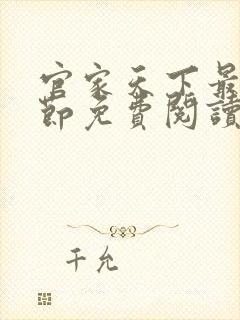 官家天下最
節免費閱讀
千允